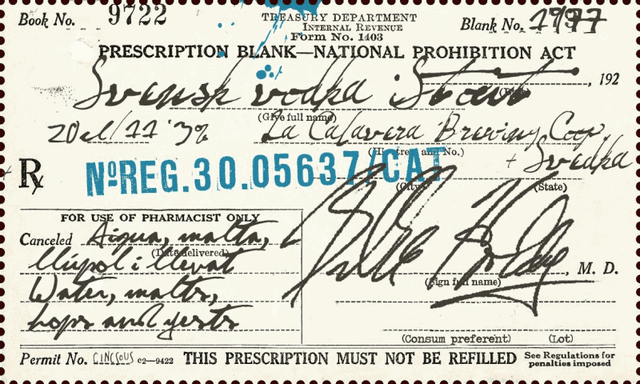 Book No. 9722
TREASURY DEPARTMENT
INTERNAL REVENUE
Form No. 1403
Blank No. 1977
PRESCRIPTION BLANK—NATIONAL PROHIBITION ACT
Svensk vodka Stout , 192
(Give full name)
20 cl/11'3% La Calavera Brewing Coop.
+ Svedka
Rx NºREG.30.05637/CAT
(City) (State)
FOR USE OF PHARMACIST ONLY
Canceled Aigua, malta,
(Date delivered)
llúpol i llevat
Water, malts,
hops and yests
(Sign full name) , M. D.
(Consum preferent) (Lot)
Permit No. 02—9422 THIS PRESCRIPTION MUST NOT BE REFILLED See Regulations for
penalties imposed